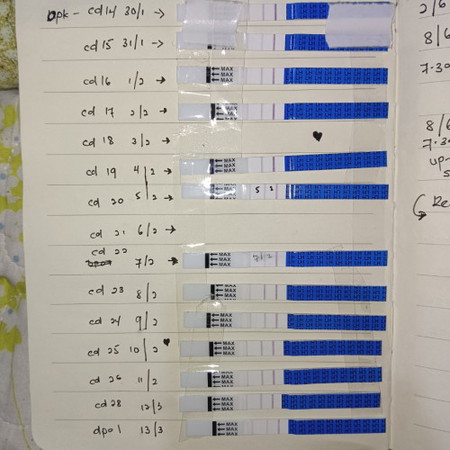 opk - cd 14 30/1 →
cd 15 31/1 →
cd 16 1/2 →
cd 17 2/2 →
cd 18 3/2 → ♥
cd 19 4/2 →
cd 20 5/2 → 5 2
cd 21 6/2 →
cd 22
7/2 → 7/2
cd 23 8/2
cd 24 9/2
cd 25 10/2 ♥
cd 26 11/2
cd 28 12/3
dpo 1 13/3
← MAX
← MAX
← MAX
2/6
8/6
7.30
8/6
7.30
up-
Re